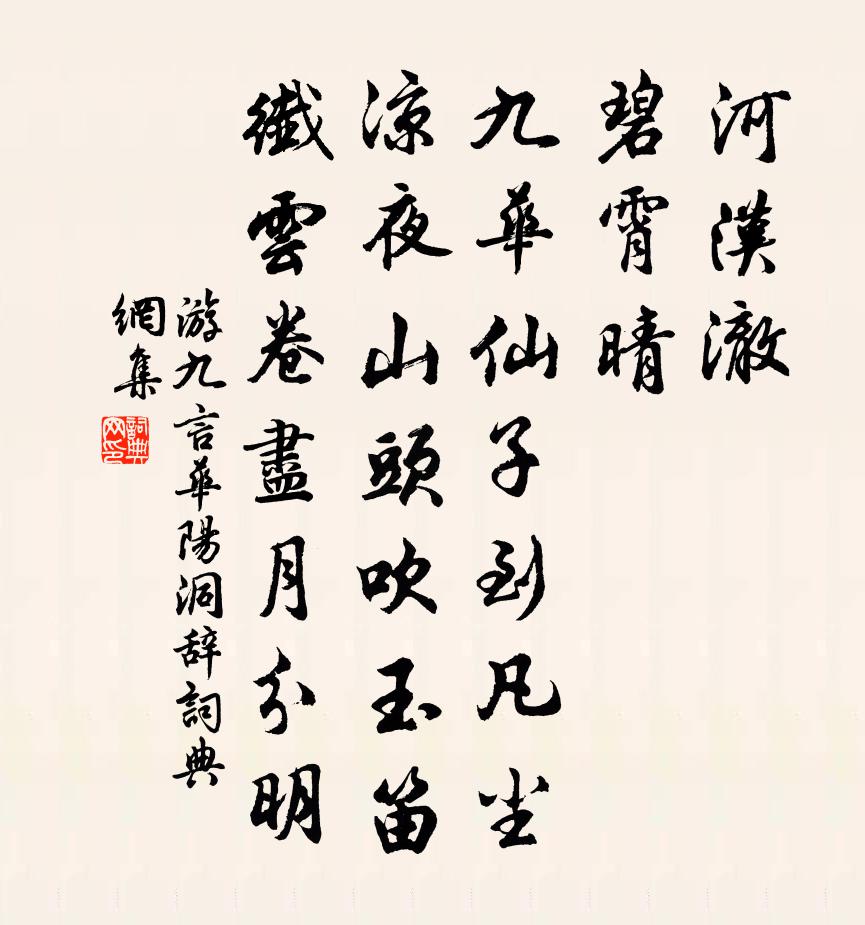 河漢澈
碧霄晴
九華仙子到凡塵
涼夜山頭吹玉笛
纖雲卷盡月分明
游九言華陽洞辞詞典
網集
詞典
网印